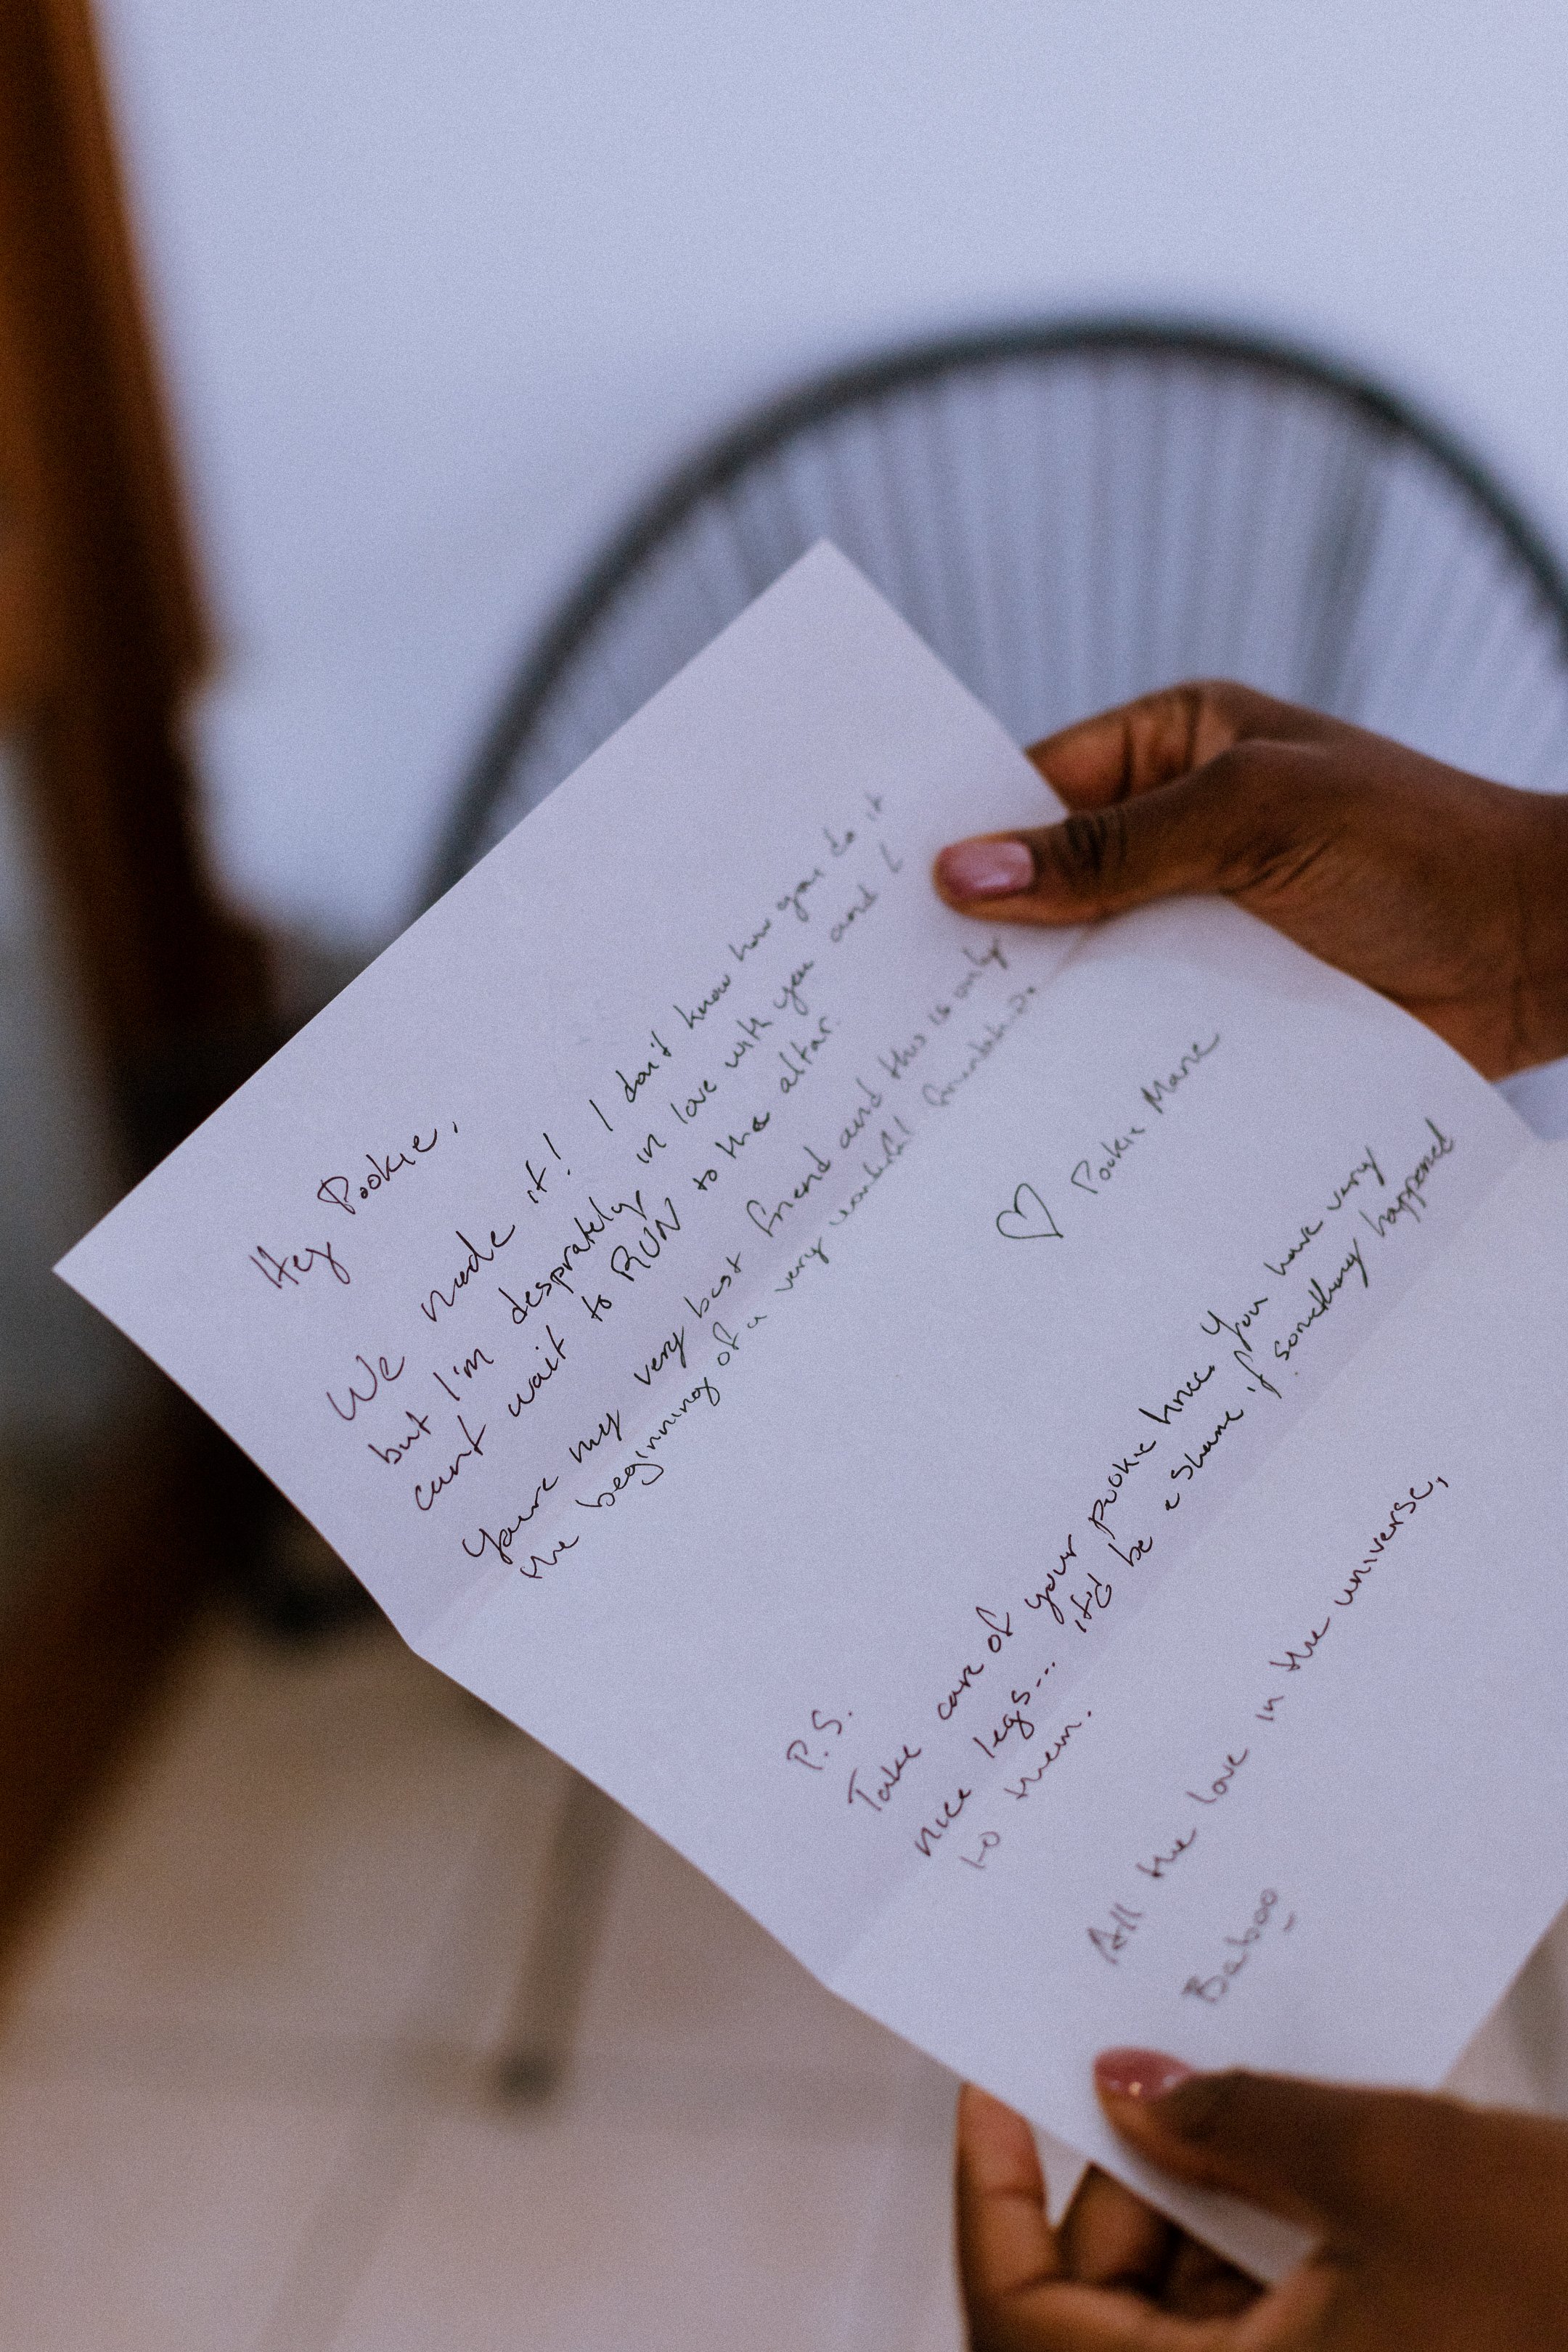 Hey Pookie,
We made it! I don't know how you do it
but I'm desprately in love with you and I
cant wait to RUN to the altar.
Youre my very best friend and this is only
the beginning of a very wonderful friendship.
♡ Pookie Marie
P.S.
Take care of your pookie knees. You have very
nice legs... it'd be a shame if something happened
to them.
All the love in the universe,
Baboo